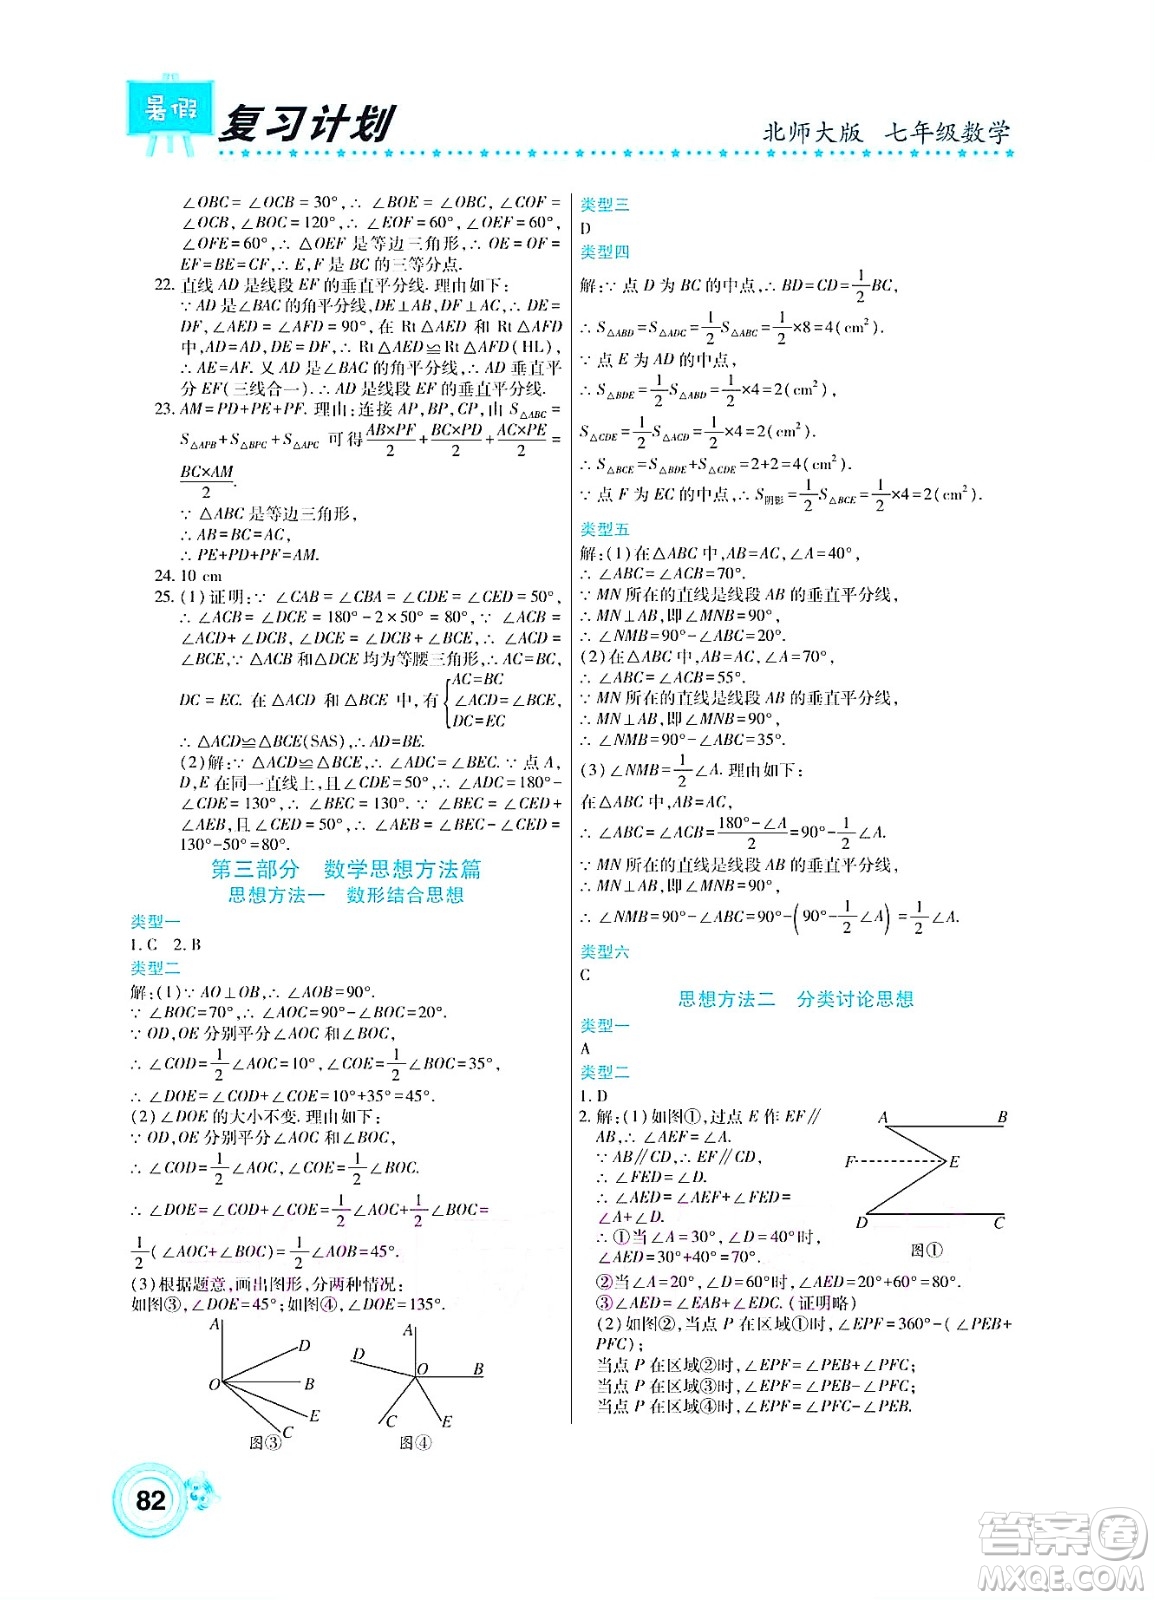 暑假
复习计划
北师大版 七年级数学
∠OBC=∠OCB=30°,∴∠BOE=∠OBC,∠COF=
∠OCB,∠BOC=120°,∴∠EOF=60°,∠OEF=60°,
∠OFE=60°,∴△OEF 是等边三角形,∴OE=OF=
EF=BE=CF,∴E,F 是 BC 的三等分点.
22. 直线 AD 是线段 EF 的垂直平分线. 理由如下:
∵AD 是∠BAC 的角平分线,DE⊥AB,DF⊥AC,∴DE=
DF,∠AED=∠AFD=90°,在 Rt△AED 和 Rt△AFD
中,AD=AD,DE=DF,∴Rt△AED≌Rt△AFD(HL),
∴AE=AF. 又 AD 是△ABC 的角平分线,∴AD 垂直平
分 EF(三线合一). ∴AD 是线段 EF 的垂直平分线.
23. AM=PD+PE+PF. 理由:连接 AP,BP,CP,由 S△ABC=
S△APB+S△BPC+S△APC 可得 AB×PF/2+BC×PD/2+AC×PE/2=
BC×AM/2.
∵△ABC 是等边三角形,
∴AB=BC=AC,
∴PE+PD+PF=AM.
24. 10 cm
25. (1)证明:∵∠CAB=∠CBA=∠CDE=∠CED=50°,
∴∠ACB=∠DCE=180°-2×50°=80°,∵∠ACB=
∠ACD+∠DCB,∠DCE=∠DCB+∠BCE,∴∠ACD=
∠BCE,∵△ACB 和△DCE 均为等腰三角形,∴AC=BC,
DC=EC. 在△ACD 和△BCE 中,有{AC=BC
∠ACD=∠BCE,
DC=EC
∴△ACD≌△BCE(SAS),∴AD=BE.
(2)解:∵△ACD≌△BCE,∴∠ADC=∠BEC. ∵点 A,
D,E 在同一直线上,且∠CDE=50°,∴∠ADC=180°-
∠CDE=130°,∴∠BEC=130°. ∵∠BEC=∠CED+
∠AEB,且∠CED=50°,∴∠AEB=∠BEC-∠CED=
130°-50°=80°.
第三部分 数学思想方法篇
思想方法一 数形结合思想
类型一
1. C 2. B
类型二
解:(1)∵AO⊥OB,∴∠AOB=90°.
∵∠BOC=70°,∴∠AOC=90°-∠BOC=20°.
∵OD,OE 分别平分∠AOC 和∠BOC,
∴∠COD=1/2∠AOC=10°,∠COE=1/2∠BOC=35°,
∴∠DOE=∠COD+∠COE=10°+35°=45°.
(2)∠DOE 的大小不变. 理由如下:
∵OD,OE 分别平分∠AOC 和∠BOC,
∴∠COD=1/2∠AOC,∠COE=1/2∠BOC.
∴∠DOE=∠COD+∠COE=1/2∠AOC+1/2∠BOC=
1/2(∠AOC+∠BOC)=1/2∠AOB=45°.
(3)根据题意,画出图形,分两种情况:
如图③,∠DOE=45°;如图④,∠DOE=135°.
A
D
O
B
E
C
图③
A
D
O
B
C
E
图④
类型三
D
类型四
解:∵点 D 为 BC 的中点,∴BD=CD=1/2BC,
∴S△ABD=S△ADC=1/2S△ABC=1/2×8=4(cm²).
∵点 E 为 AD 的中点,
∴S△BDE=1/2S△ABD=1/2×4=2(cm²),
S△CDE=1/2S△ACD=1/2×4=2(cm²),
∴S△BCE=S△BDE+S△CDE=2+2=4(cm²).
∵点 F 为 EC 的中点,∴S阴影=1/2S△BCE=1/2×4=2(cm²).
类型五
解:(1)在△ABC 中,AB=AC,∠A=40°,
∴∠ABC=∠ACB=70°.
∵MN 所在的直线是线段 AB 的垂直平分线,
∴MN⊥AB,即∠MNB=90°,
∴∠NMB=90°-∠ABC=20°.
(2)在△ABC 中,AB=AC,∠A=70°,
∴∠ABC=∠ACB=55°.
∵MN 所在的直线是线段 AB 的垂直平分线,
∴MN⊥AB,即∠MNB=90°,
∴∠NMB=90°-∠ABC=35°.
(3)∠NMB=1/2∠A. 理由如下:
在△ABC 中,AB=AC,
∴∠ABC=∠ACB=180°-∠A/2=90°-1/2∠A.
∵MN 所在的直线是线段 AB 的垂直平分线,
∴MN⊥AB,即∠MNB=90°,
∴∠NMB=90°-∠ABC=90°-(90°-1/2∠A)=1/2∠A.
类型六
C
思想方法二 分类讨论思想
类型一
A
类型二
1. D
2. 解:(1)如图①,过点 E 作 EF∥
AB,∴∠AEF=∠A.
∵AB∥CD,∴EF∥CD,
∴∠FED=∠D.
∴∠AED=∠AEF+∠FED=
∠A+∠D.
∴①当∠A=30°,∠D=40°时,
∠AED=30°+40°=70°.
②当∠A=20°,∠D=60°时,∠AED=20°+60°=80°.
③∠AED=∠EAB+∠EDC.(证明略)
(2)如图②,当点 P 在区域①时,∠EPF=360°-(∠PEB+
∠PFC);
当点 P 在区域②时,∠EPF=∠PEB+∠PFC;
当点 P 在区域③时,∠EPF=∠PEB-∠PFC;
当点 P 在区域④时,∠EPF=∠PFC-∠PEB.
A
B
F
E
D
C
图①
82
答案圈
MXQE.COM